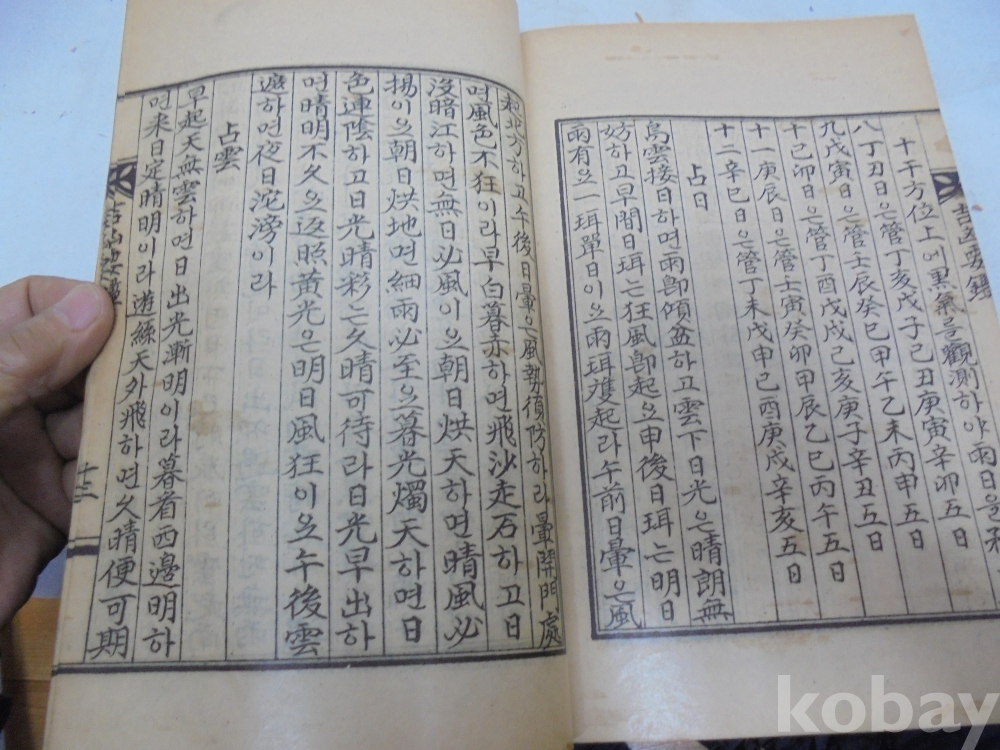 十干方位上에黑氣를觀測하야雨日을
八丁丑日은管丁亥戊子己丑庚寅辛卯五日
九戊寅日은管壬辰癸巳甲午乙未丙申五日
十己卯日은管丁酉戊戌己亥庚子辛丑五日
十一庚辰日은管壬寅癸卯甲辰乙巳丙午五日
十二辛巳日은管丁未戊申己酉庚戌辛亥五日
占日
烏雲接日하면雨卽傾盆하고雲下日光은晴朗無
妨하고早間日珥는狂風卽起오申後日珥는明日
雨有오一珥單日이오兩珥雙起라午前日暈은風
和北方하고午後日暈은風勢須防하라暈開門處
면風色不狂이라早白暮赤하면飛沙走石하고日
沒暗江하면無日必風이오朝日烘天하면晴風必
揚이오朝日烘地면細雨必至오暮光燭天하면日
色連陰하고日光晴彩는久晴可待라日光早出하
면晴明不久오返照黃光은明日風狂이오午後雲
遮하면夜日沱滂이라
占雲
早起天無雲하면日出光漸明이라暮看西邊明하
면来日定晴明이라遊絲天外飛하면久晴便可期
十三
kobay